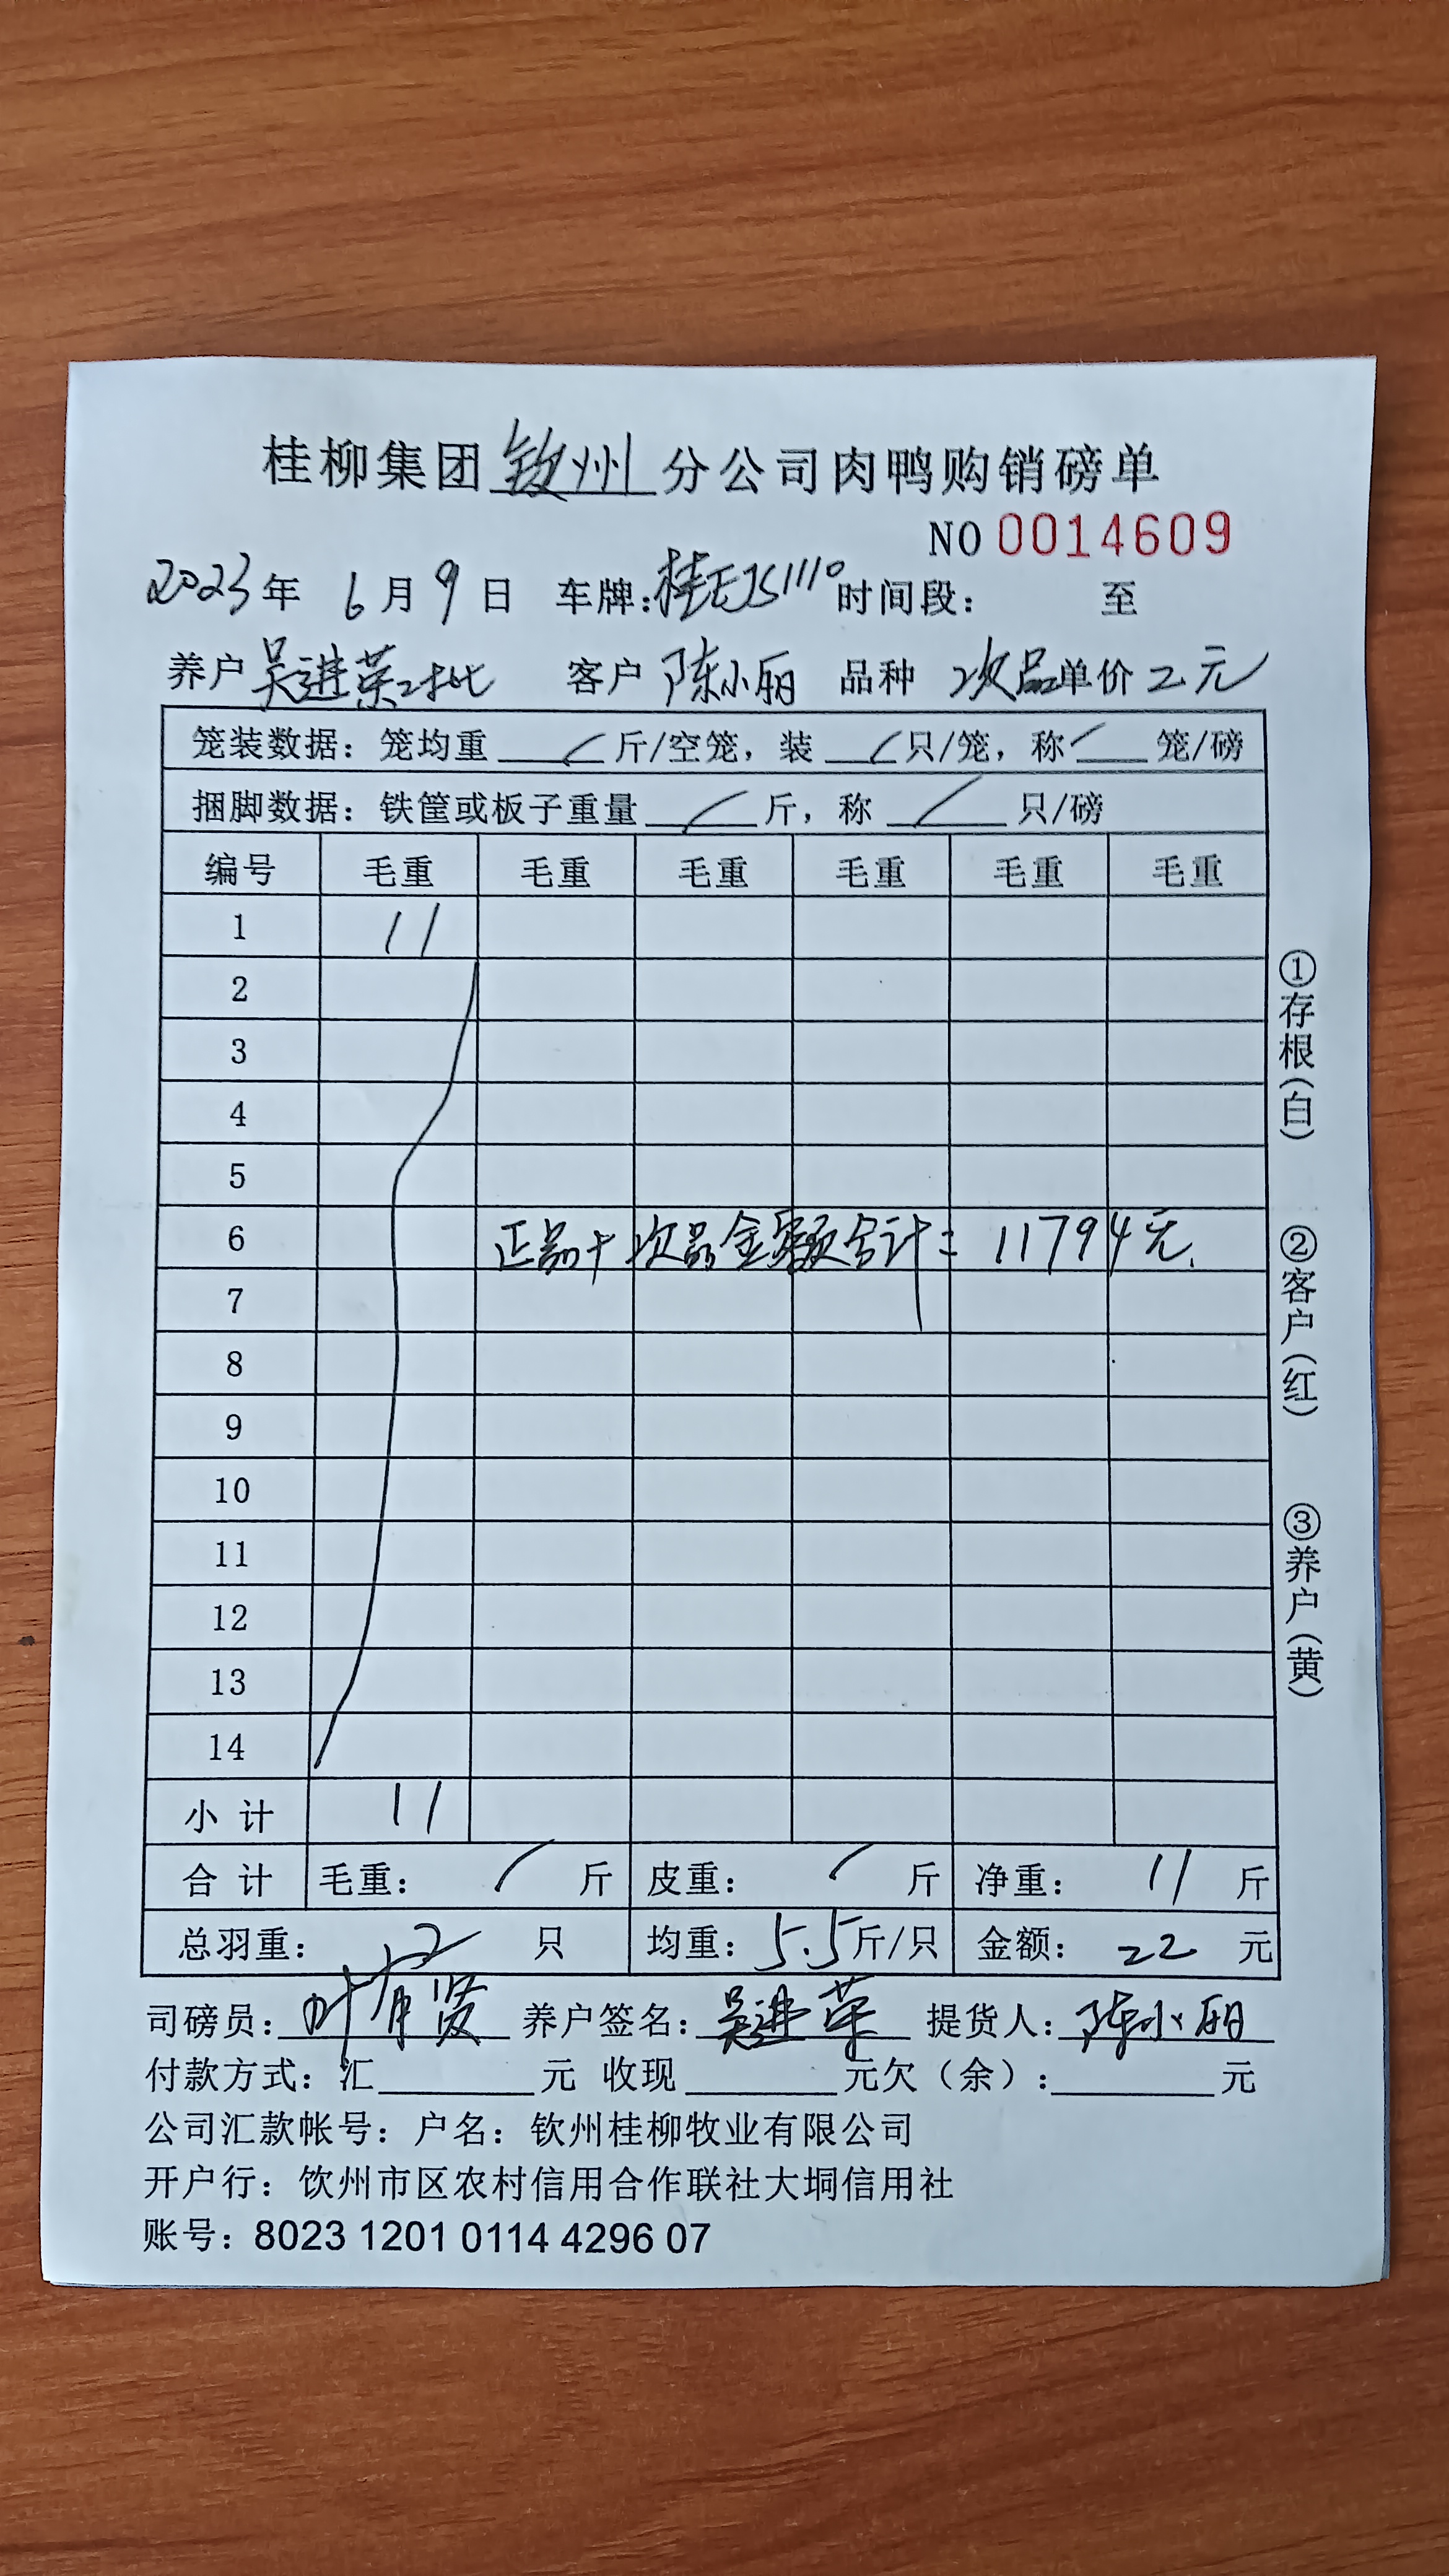 桂柳集团钦州分公司肉鸭购销磅单
NO 0014609
2023年 6月9日 车牌:桂EJS1110时间段: 至
养户 吴进荣二批 客户 陈小丽 品种 次品单价 2元
笼装数据: 笼均重 / 斤/空笼, 装 / 只/笼, 称 / 笼/磅
捆脚数据: 铁筐或板子重量 / 斤, 称 / 只/磅
编号 毛重 毛重 毛重 毛重 毛重 毛重
1 11
2
3
4
5
6 正品+次品金额合计= 11794元.
7
8
9
10
11
12
13
14
小计 11
合计 毛重: / 斤 皮重: / 斤 净重: 11 斤
总羽重: 2 只 均重: 5.5斤/只 金额: 22 元
司磅员: 叶有贤 养户签名: 吴进荣 提货人: 陈小丽
付款方式: 汇 元 收现 元欠(余): 元
公司汇款帐号: 户名: 钦州桂柳牧业有限公司
开户行: 饮州市区农村信用合作联社大垌信用社
账号: 8023 1201 0114 4296 07
①存根(白)
②客户(红)
③养户(黄)